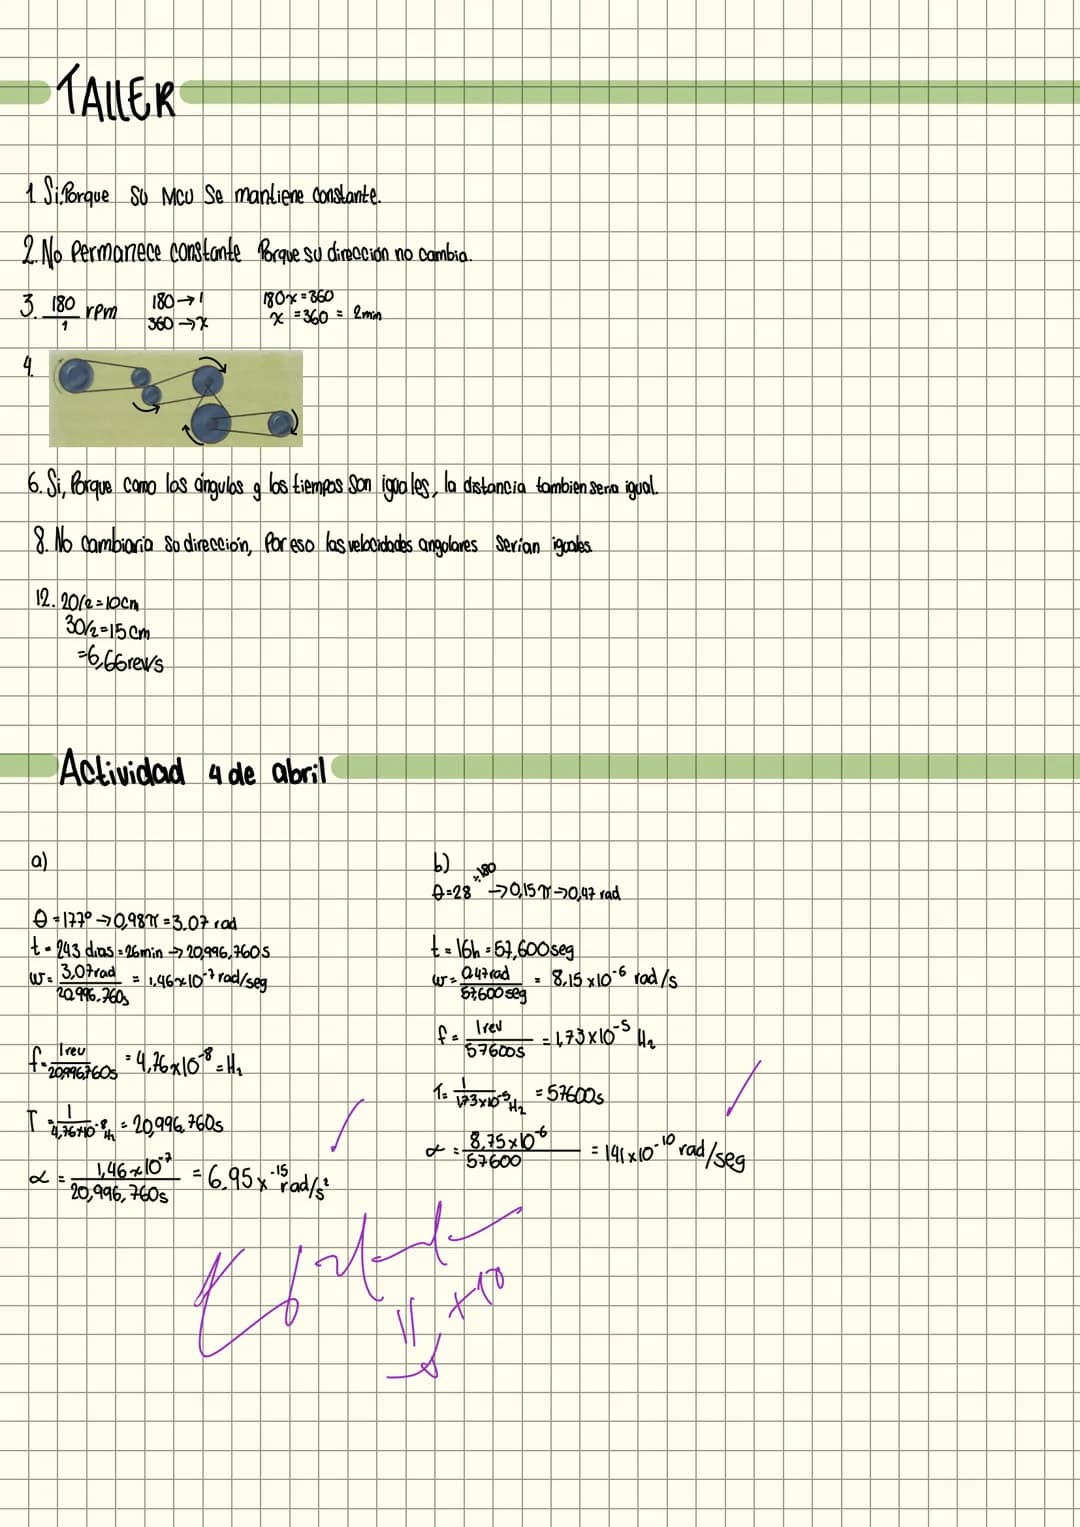 TALLER
1. Si. Porque su MCU se mantiene constante.
2. No Permanece constante Porque su dirección no cambia.
3. 180/1 rpm 180→1 180x=360
360→x x=360 = 2min
4.
6. Si, Porque como los ángulos y los tiempos son iguales, la distancia tambien seria igual.
8. No cambiaria su dirección, Por eso las velocidades angolares serian iguales
12. 20/2=10cm
30/2=15cm
=6,66rev/s
Actividad 4 de abril
a)
θ=177° →0,98π=3,07 rad
t= 243 dias=26min → 20,996,760s
w= 3,07rad/20,996,760s = 1,46x10⁻⁷ rad/seg
f= 1rev/20,996,760s = 4,76x10⁻⁸ = Hz
T= 1/4,76x10⁻⁸Hz = 20,996,760s
α= 1,46x10⁻⁷/20,996,760s = 6,95x⁻¹⁵ rad/s²
b)
÷180
θ=28 →0,15π→0,47 rad
t=16h=57,600seg
w= 0,47rad/57,600seg = 8,15x10⁻⁶ rad/s
f= 1rev/57600s = 1,73x10⁻⁵ Hz
T= 1/1,73x10⁻⁵Hz = 57600s
α= 8,75x10⁻⁶/57600 = 141x10⁻¹⁰ rad/seg